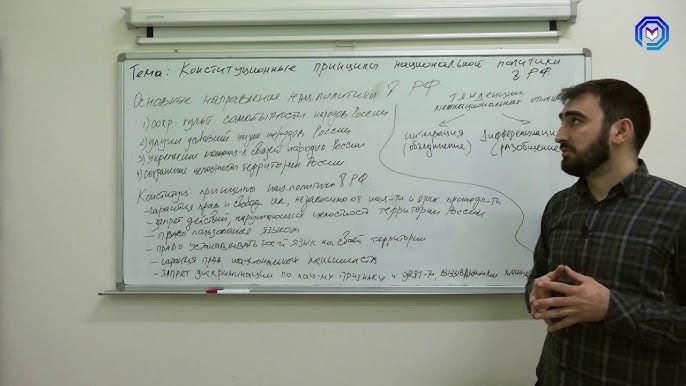 Тема: Конституционные принципы национальной политики
в РФ
Основные направления нац. политики в РФ
1) сохр. культ. самобытности народов России
2) улучш условий жизни народов России
3) укрепление связей народов России
4) сохранение целостности территории России
Конституц. принципы нац. политики в РФ
- гарантия прав и свобод чел, независимо от нац-ти и
- запрет действий, нарушающих целостность территории России
- право пользования языком
- право устанавливать гос-й язык на своей территории
- гарантия прав национальных меньшинств
- запрет дискриминации по нац-му признаку и деят-ти,
тенденции
межнациональных
интеграция
(объединение)
Дифференциаци
(разобщение)